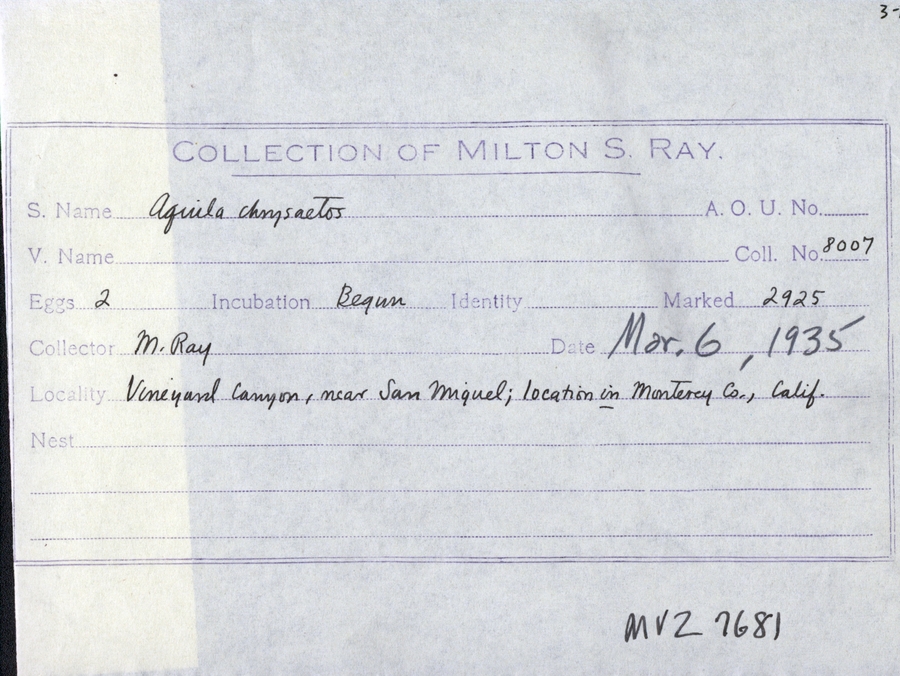 3-
COLLECTION OF MILTON S. RAY.
S. Name Aquila chrysaetos A. O. U. No.
V. Name Coll. No. 8007
Eggs 2 Incubation Begun Identity Marked 2925
Collector M. Ray Date Mar. 6, 1935
Locality Vineyard Canyon, near San Miguel; location in Monterey Co., Calif.
Nest
MVZ 7681